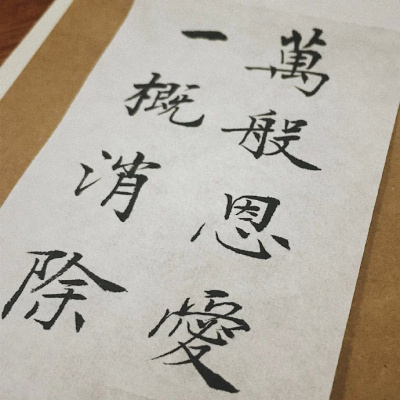 萬般恩愛
一概消除